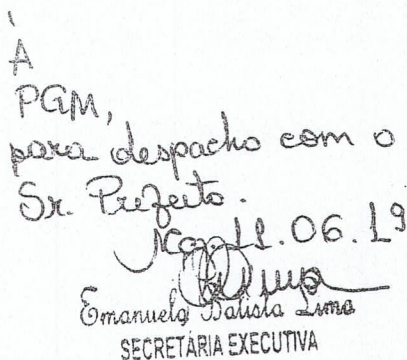 À
PGM,
para despacho com o
Sr. Prefeito.
11.06.19
Emanuela Batista Lima
SECRETÁRIA EXECUTIVA